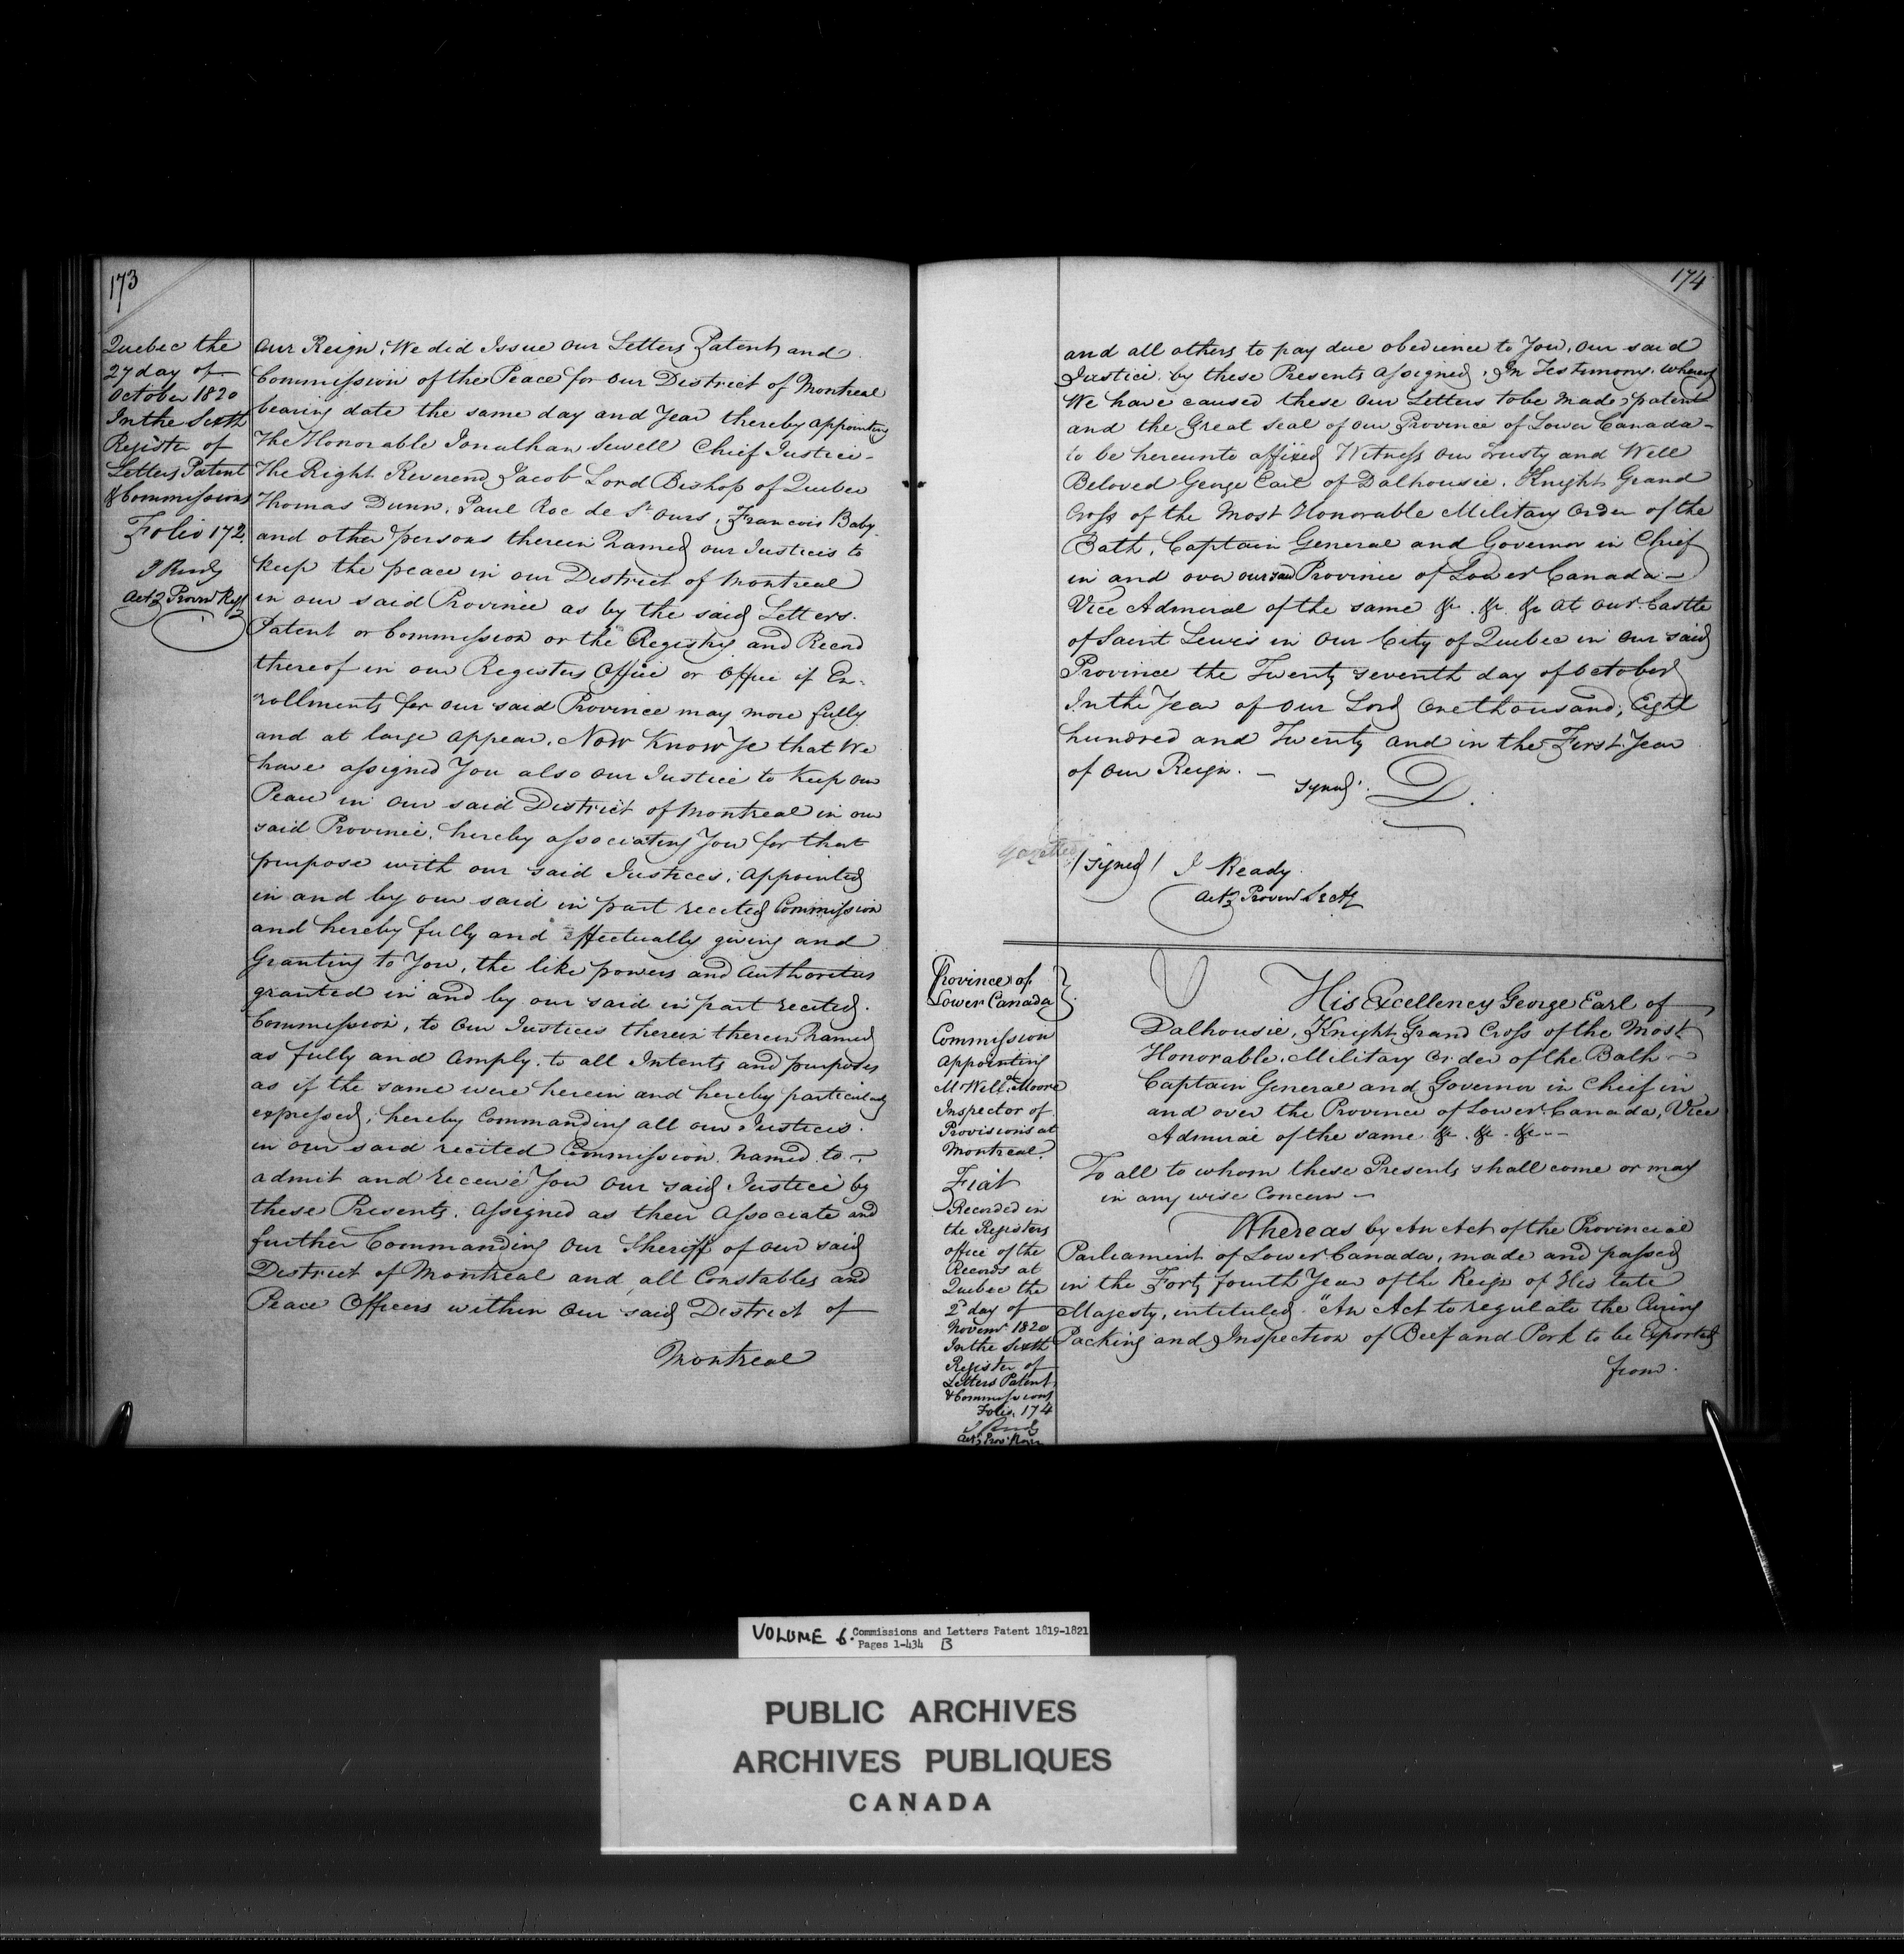 173
Quebec the
27 day of
October 1820
In the Sixth
Register of
Letters Patent
& Commissions
Folio 172.
J Ready
Actg Provl Regr
Our Reign, We did Issue our Letters Patent and
Commission of the Peace for our District of Montreal
bearing date the same day and Year thereby appointing
The Honorable Jonathan Sewell Chief Justice -
The Right Reverend Jacob Lord Bishop of Quebec
Thomas Dunn, Paul Roc de St Ours, Francois Baby
and other persons therein Named our Justices to
keep the peace in our District of Montreal
in our said Province as by the said Letters
Patent or Commission or the Registry and Record
thereof in our Registers Office or Office if En-
rollments for our said Province may more fully
and at large appear. Now Know Ye that We
have assigned You also our Justice to Keep our
Peace in our said District of Montreal in our
said Province, hereby associating You for that
purpose with our said Justices, appointed
in and by our said in part recited Commission
and hereby fully and effectually giving and
Granting to You, the like powers and Authorities
granted in and by our said in part recited
Commission, to Our Justices therein therein Named
as fully and Amply to all Intents and purposes
as if the same were herein and hereby particularly
expressed; hereby Commanding all our Justices
in our said recited Commission Named to -
admit and receive You our said Justice by
these Presents Assigned as their Associate and
further Commanding Our Sheriff of our said
District of Montreal and all Constables and
Peace Officers within Our said District of
Montreal
174
and all others to pay due obedience to You, our said
Justice by these Presents Assigned, In Testimony whereof
We have caused these Our Letters to be made patent
and the Great Seal of our Province of Lower Canada -
to be hereunto affixed Witness Our Trusty and Well
Beloved George Earl of Dalhousie, Knight Grand
Cross of the Most Honorable Military Order of the
Bath, Captain General and Governor in Chief
in and over our said Province of Lower Canada -
Vice Admiral of the same &c. &c. &c at our Castle
of Saint Lewis in our City of Quebec in our said
Province the Twenty seventh day of October
In the Year of Our Lord One thousand, Eight
hundred and Twenty and in the First Year
of Our Reign. -
Signed D.
gazetted
/Signed/ J Ready
Actg Provl Secty
Province of
Lower Canada }
Commission
Appointing
Mr Willm Moore
Inspector of
Provisions at
Montreal.
Fiat
Recorded in
the Registers
office of the
Records at
Quebec the
2d day of
Novemr 1820
In the Sixth
Register of
Letters Patent
& Commissions
Folio. 174
J Ready
His Excellency George Earl of
Dalhousie, Knight Grand Cross of the Most
Honorable Military Order of the Bath -
Captain General and Governor in Chief in
and over the Province of Lower Canada, Vice
Admiral of the same &c. &c. &c --
To all to whom these Presents shall come or may
in any wise Concern -
Whereas by An Act of the Provincial
Parliament of Lower Canada, made and passed
in the Forty fourth Year of the Reign of His late
Majesty, intituled "An Act to regulate the Curing
Packing and Inspection of Beef and Pork to be Exported
from
VOLUME 6. Commissions and Letters Patent 1819-1821
Pages 1-434 B
PUBLIC ARCHIVES
ARCHIVES PUBLIQUES
CANADA